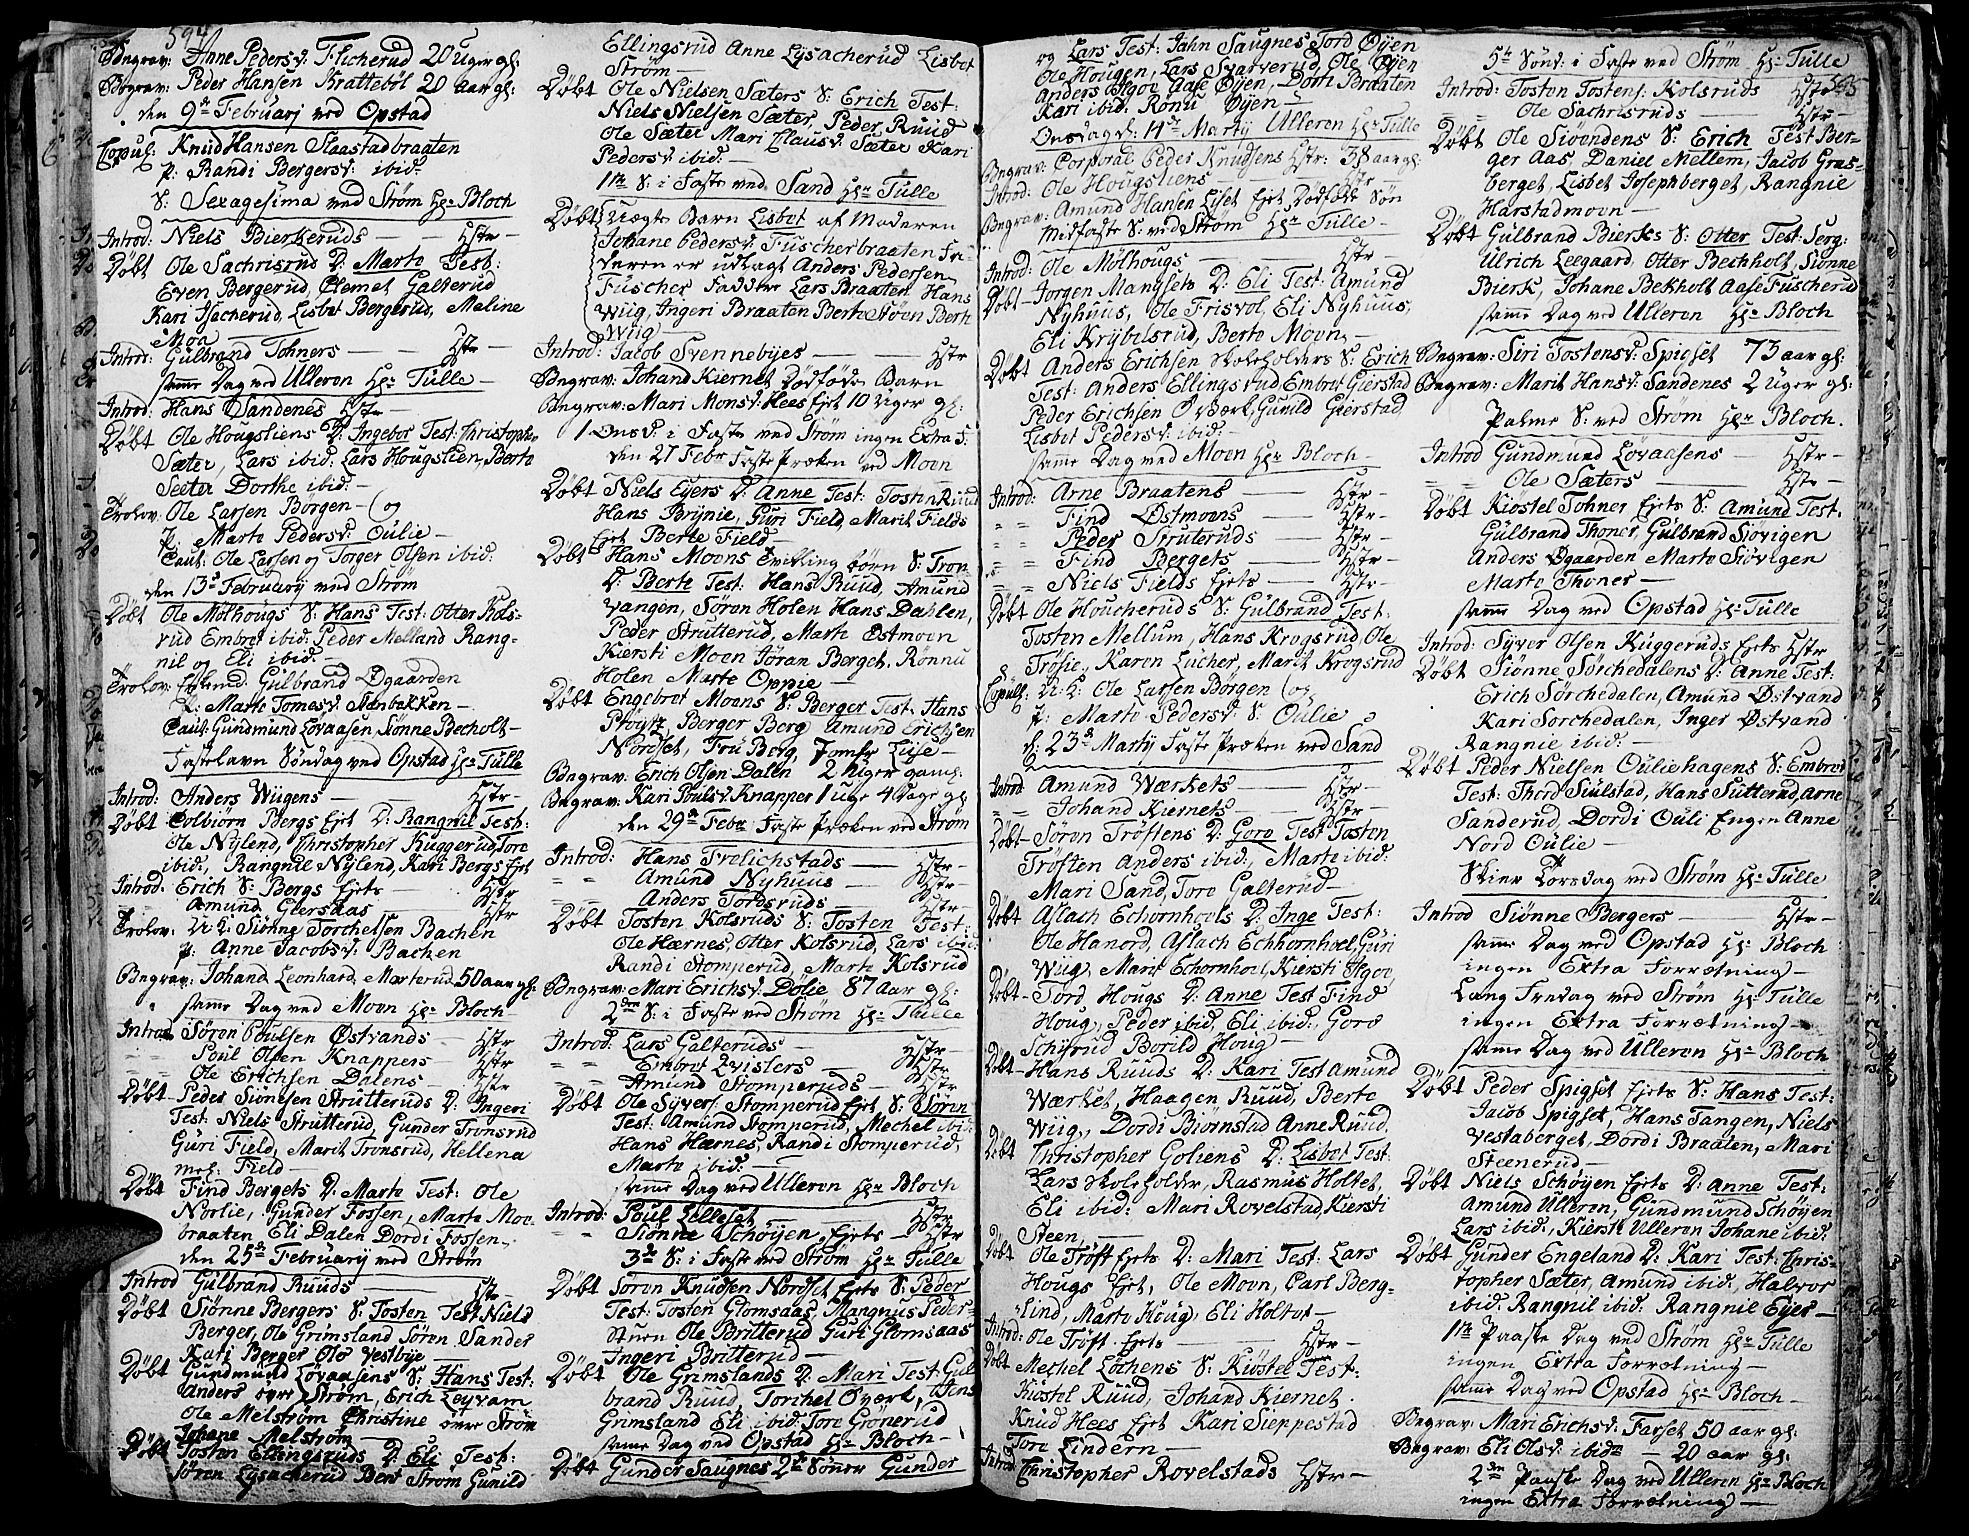 594
Begrav: Anne Pedersd: Flicherud 20 Uger gl:
Begrav: Peder Hansen Bratteböl 20 aar gl:
den 9de Februarj ved Opstad
Copul: Knud Hansen Slaastadbraaten
P: Randi Bergersd: ibid:
S: Sexagesima ved Strøm Hr: Bloch
Introd: Niels Bierkeruds — Hstr —
Döbt Ole Sachrisrud D: Marte Test:
Even Bergerud, Clemet Galterud
Kari Isacherud, Lisbet Bergerud, Maline
Moa —
Introd: Gulbrand Tohners — Hstr —
samme Dag ved Ulleren Hr: Tulle —
Introd: Hans Sandenes Hstr —
Döbt Ole Hougsliens D: Ingebor Test: Christoph
Sæter, Lars ibid: Lars Hougslien, Berte
Seeter Dorthe ibid: —
Trolov: Ole Larsen Börgen — og
P: Marte Pedersd: Oulie —
Caut: Ole Larsen og Torger Olsen ibid:
den 13de Februarij ved Strøm
Döbt Ole Mölhougs S: Hans Test: Otter Kols-
rud Embret ibid: Peder Melland Rang-
nil og Eli ibid:
Trolov: Gulbrand Øgaarden
P: Marte Tomesd:
Caut: Gundmund Lövaasen, Siønne Becholt —
Fastelavn Söndag ved Opstad Hr: Tulle
Introd: Anders Wiigens — Hstr —
Döbt Colbiörn Bergs Ejet D: Rangnil Test:
Ole Nylend, Christopher Kuggerud, Tore
ibid:, Rangnil Nylend, Kari Bergs Ejet
Introd: Erich S: Bergs Ejets — Hstr
Amund Giersaas — Hstr
Trolov: U: K: Siönne Torchelsen Bachen
P: Anne Jacobsd: Bachen
Begrav: Johand Leonhard Marterud 50 aar gl:
samme Dag ved Moen Hr: Bloch
Introd: Sören Poulsen Østvands — Hstr
Poul Olsen Knappers — Hstr
Ole Erichsen Dalens — Hstr
Döbt Peder Siönesen Strutteruds D: Ingeri
Test: Niels Strutterud, Gunder Tronsrud
Guri Field, Marit Tronsrud, Hellena
Field —
Döbt Find Bergets D: Marte Test: Ole
Norlie, Gunder Fossen, Marte Moe-
braaten Eli Dalen Dordi Fossen
den 25de Februarij ved Strøm
Introd Gulbrand Ruuds — Hstr —
Döbt Siönne Bergers S: Tosten Test Niels
Berger, Ole Grimsland Sören Sander
Kari Berger Ole Vestbye —
Döbt Gundmund Lövaasens S: Hans Test:
Anders øvre Strøm, Erich Løyvam
Ole Melström Christine øvre Strøm
Johane Melström —
Döbt Tosten Ellingsruds D: Eli Test:
Sören Lysacherud Bent Strøm Gunild
Ellingsrud Anne Lysacherud Lisbet
Ström —
Döbt Ole Nielsen Sæters S: Erich Test:
Niels Nielsen Sæter, Peder Ruud
Ole Sæter Mari Clausd: Sæter Kari
Pedersd: ibid: —
1te S: i Faste ved Sand Hr: Tulle
Döbt Uægte Barn Lisbet af Moderen
Johane Pedersd: Fuscherbraaten Fa-
deren er udlagt Anders Pedersen
Fuscher Fadder Lars Braaten Hans
Wiig, Ingeri Braaten Berte Støen Berte
Wiig —
Introd: Jacob Svennebÿes — Hstr
Begrav: Johand Kiernet Dödföde Barn
Begrav: Mari Monsd: Hees Ejet 10 Uger gl:
1 Onsd: i Faste ved Strøm ingen Extra F:
den 27 Febr Faste Præken ved Moen
Döbt Niels Eÿers D: Anne Test: Tosten Ruud
Hans Brynie, Guri Field, Marit Fields
Ejet Berte Field —
Döbt Hans Moens Tvilling börn S: Tron
D: Berte Test: Hans Ruud, Amund
Vangen, Sören Holen Hans Dahlen,
Peder Strutterud, Marte Østmoen
Kiersti Moen Jöran Berget, Rönnu
Holen Marte Oppie —
Döbt Engebret Moens S: Berger Test: Hans
Pröytz, Berger Berg Amund Erichsen
Nordset, Fru Berg, Jomfr Luse —
Begrav: Erich Olsen Dalen 2 Uger gaml:
Begrav: Kari Poulsd: Knapper 1 uge 4 Dage gl
den 29de Febr Faste Præken ved Strøm
Introd: Hans Frelichstads — Hstr —
Amund Nyhuus — Hstr —
Anders Tordsruds — Hstr —
Döbt Tosten Kolsruds S: Tosten Test:
Ole Hærnes, Otter Kolsrud, Lars ibid
Randi Stomperud, Marte Kolsrud
Begrav: Mari Erichsd: Dolie 87 Aar gl:
2den S: i Faste ved Strøm Hr: Tulle
Introd: Lars Galteruds — Hstr —
Embret Qvislers — Hstr —
Amund Stomperuds — Hstr —
Döbt Ole Syvers: Stomperud Ejet S: Sören
Test: Amund Stomperud, Mechel ibid
Hans Hærnes, Randi Stomperud,
Marte ibid: —
samme Dag ved Ulleren Hr Bloch
Introd: Poul Lilleset — Hstr
Siönne Schöyen Ejets — Hstr
3de S: i Faste ved Strøm Hr: Tulle
Döbt Sören Knudsen Nordset Ejets S: Peder
Test: Tosten Glomsaas, Mangnus Peder-
stuen Ole Britterud Guri Glomsaas
Ingeri Britterud —
Döbt Ole Grimslands D: Mari Test: Gul
brand Ruud, Torchel Overk, Jens
Grimsland Eli ibid: Tore Grönerud
samme Dag ved Opstad Hr: Bloch —
Döbt Gunder Saugnes 2de Söner Gunder
og Lars Test: Jahn Saugnes Tord Øyen
Ole Hougen, Lars Svarverud, Ole Øyen
Anders Aase Øyen, Dorti Braaten
Kari ibid: Rönu Øyen —
Onsdag d: 14de Martij Ulleren Hr: Tulle
Begrav: Corporal Peder Knudsens Hstr: 38 aar gl:
Introd: Ole Hougsliens — Hstr
Begrav: Amund Hansen Liset Ejet Dödfödte Søn
Midfaste S: ved Strøm Hr: Tulle —
Introd: Ole Mölhougs — Hstr —
Döbt Jorgen Mangsets D: Eli Test: Amund
Nyhuus, Ole Frisvol, Eli Nyhuus,
Eli Krybilsrud, Berte Moen —
Döbt Anders Erichsen Skoleholders S: Erich
Test: Anders Ellingsrud Embret Gierstad
Peder Erichsen Overk, Gunild Gierstad
Lisbet Pedersd: ibid: —
samme Dag ved Moen Hr: Bloch —
Introd: Arne Braatens — Hstr —
Find Østmoens — Hstr —
Peder Struteruds — Hstr —
Find Bergets — Hstr —
Niels Fields Ejets — Hstr —
Döbt Ole Houcheruds S: Gulbrand Test:
Tosten Mellum, Hans Krogsrud Ole
Tröfte, Karen Lucher, Marit Krogsrud
Copull: U: K: Ole Larsen Börgen og
P: Marte Pedersd: S: Oulie
d: 23de Martij Faste Præken ved Sand
Introd Amund Wærkets — Hstr —
Johand Kiernets — Hstr —
Döbt Sören Tröftens D: Goro Test Tosten
Tröften Anders ibid:, Marte ibid:
Mari Sand, Tore Galterud —
Döbt Aslach Echornhoels D: Inge Test:
Ole Hanord, Aslach Echhornhoel, Guri
Wiig, Marie Echornhoel, Kiersti
Döbt Tord Hougs D: Anne Test Find
Houg, Peder ibid, Eli ibid:, Goro
Schifrud Borild Houg —
Döbt Hans Ruuds D: Kari Test Amund
Wærket, Haagen Ruud, Berte
Wiig, Dordi Biörnstad Anne Ruud.
Döbt Christopher Goliens D: Lisbet Test:
Lars Skoleholder, Rasmus Holtet,
Eli ibid: Mari Rovelstad, Kiersti
Steen, —
Döbt Ole Tröft Ejets D: Mari Test: Lars
Hougs Ejet, Ole Moen, Carl Berg-
lind, Marte Houg, Eli Holtet —
Introd: Ole Tröft Ejets — Hstr —
Döbt Mechel Lochens S: Kiöstel Test:
Kiöstel Ruud, Johand Kiernet
Knud Hees Ejet Kari Sieppestad
Tore Lindern —
Introd Christopher Rovelstads Hstr —
5te Sönd: i Faste ved Strøm Hr: Tulle
595
Introd: Tosten Tostens: Kolsruds Hstr
Ole Sachrisruds — Hstr —
Döbt Ole Siöendens S: Erich Test Ber-
ger Aas, Daniel Mellem, Jacob Græs-
berget, Lisbet Josephberget, Rangnie
Harstadmoen —
Döbt Gulbrand Bierkes S: Otter Test: Serg:
Ulrich Leegaard, Otter Bechholt, Siönne
Bierk, Johane Bekholt Aase Fuscherud
samme Dag ved Ulleren Hr: Bloch
Begrav: Siri Tostensd: Spigset 73 aar gl:
Begrav: Marit Hansd: Sandenes 2 Uger gl:
Palme S: ved Strøm Hr: Bloch.
Introd Gundmund Lövaasens — Hstr —
Ole Sæters — Hstr —
Döbt Kiöstel Tohner Ejets S: Amund Test:
Gulbrand Thoner, Gulbrand Siövigen
Anders Øgaarden Marte Siövigen
Marte Thoner —
samme Dag ved Opstad Hr: Tulle
Introd: Syver Olsen Kuggeruds Ejets Hstr
Döbt Siönne Sörchedalens D: Anne Test:
Erich Sörchedalen, Amund Østvand
Kari Sorchedalen, Inger Østvand
Rangnie ibid: —
Döbt Peder Nielsen Ouliehagens S: Embret
Test: Thord Siulstad, Hans Sutterud, Arne
Sanderud Dordi Ouli Engen Anne
Nord Oulie —
Skier Torsdag ved Strøm Hr: Tulle
Introd Siönne Bergers — Hstr —
samme Dag ved Opstad Hr: Bloch
ingen Extra Forrætning —
Lang Fredag ved Strøm Hr: Tulle
ingen Extra Forrætning —
samme Dag ved Ulleren Hr: Bloch
Döbt Peder Spigset Ejets S: Hans Test:
Jacob Spigset, Hans Tangen, Niels
Vestaberget, Dordi Braaten, Mari
Steenerud —
Döbt Niels Schöyen Ejets D: Anne Test:
Amund Ulleren, Gundmund Schöyen
Lars ibid:, Kiersti Ulleren Johane ibid:
Döbt Gunder Engeland D: Kari Test: Chris-
topher Sæter, Amund ibid:, Halvor
ibid: Rangnil ibid: Rangnil Eyer —
1te Paaske Dag ved Strøm Hr: Tulle
ingen Extra Forrætning —
samme Dag ved Opstad Hr: Bloch —
Begrav: Mari Erichsd: Farset 50 aar gl:
Begrav: Eli Olsd: ibidm — 20 aar gl:
2den Paaske Dag ved Ulleren Hr: Bloch
ingen Extra Forrætning —